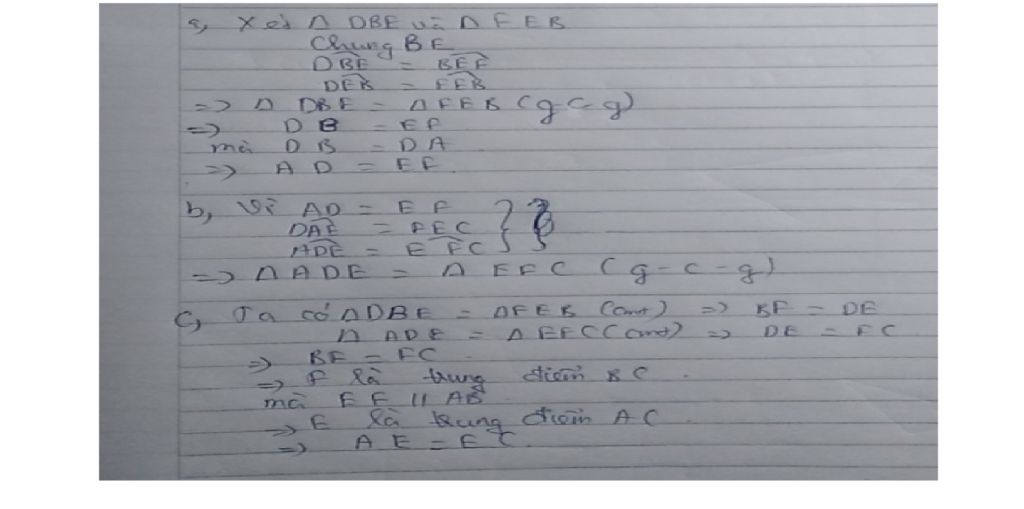 a, Xét Δ DBE và Δ FEB
Chung BE
DBE = BEF
DEB = FEB
=> Δ DBE = Δ FEB (g-c-g)
=> DB = EF
mà DB = DA
=> AD = EF
b, Vì AD = EF
DAE = FEC
ADE = EFC
=> Δ ADE = Δ EFC (g-c-g)
c, Ta có ΔDBE = ΔFEB (cmt) => BF = DE
Δ ADE = Δ EFC (cmt) => DE = FC
=> BF = FC
=> F là trung điểm BC.
mà EF // AB
=> E là trung điểm AC
=> AE = EC.